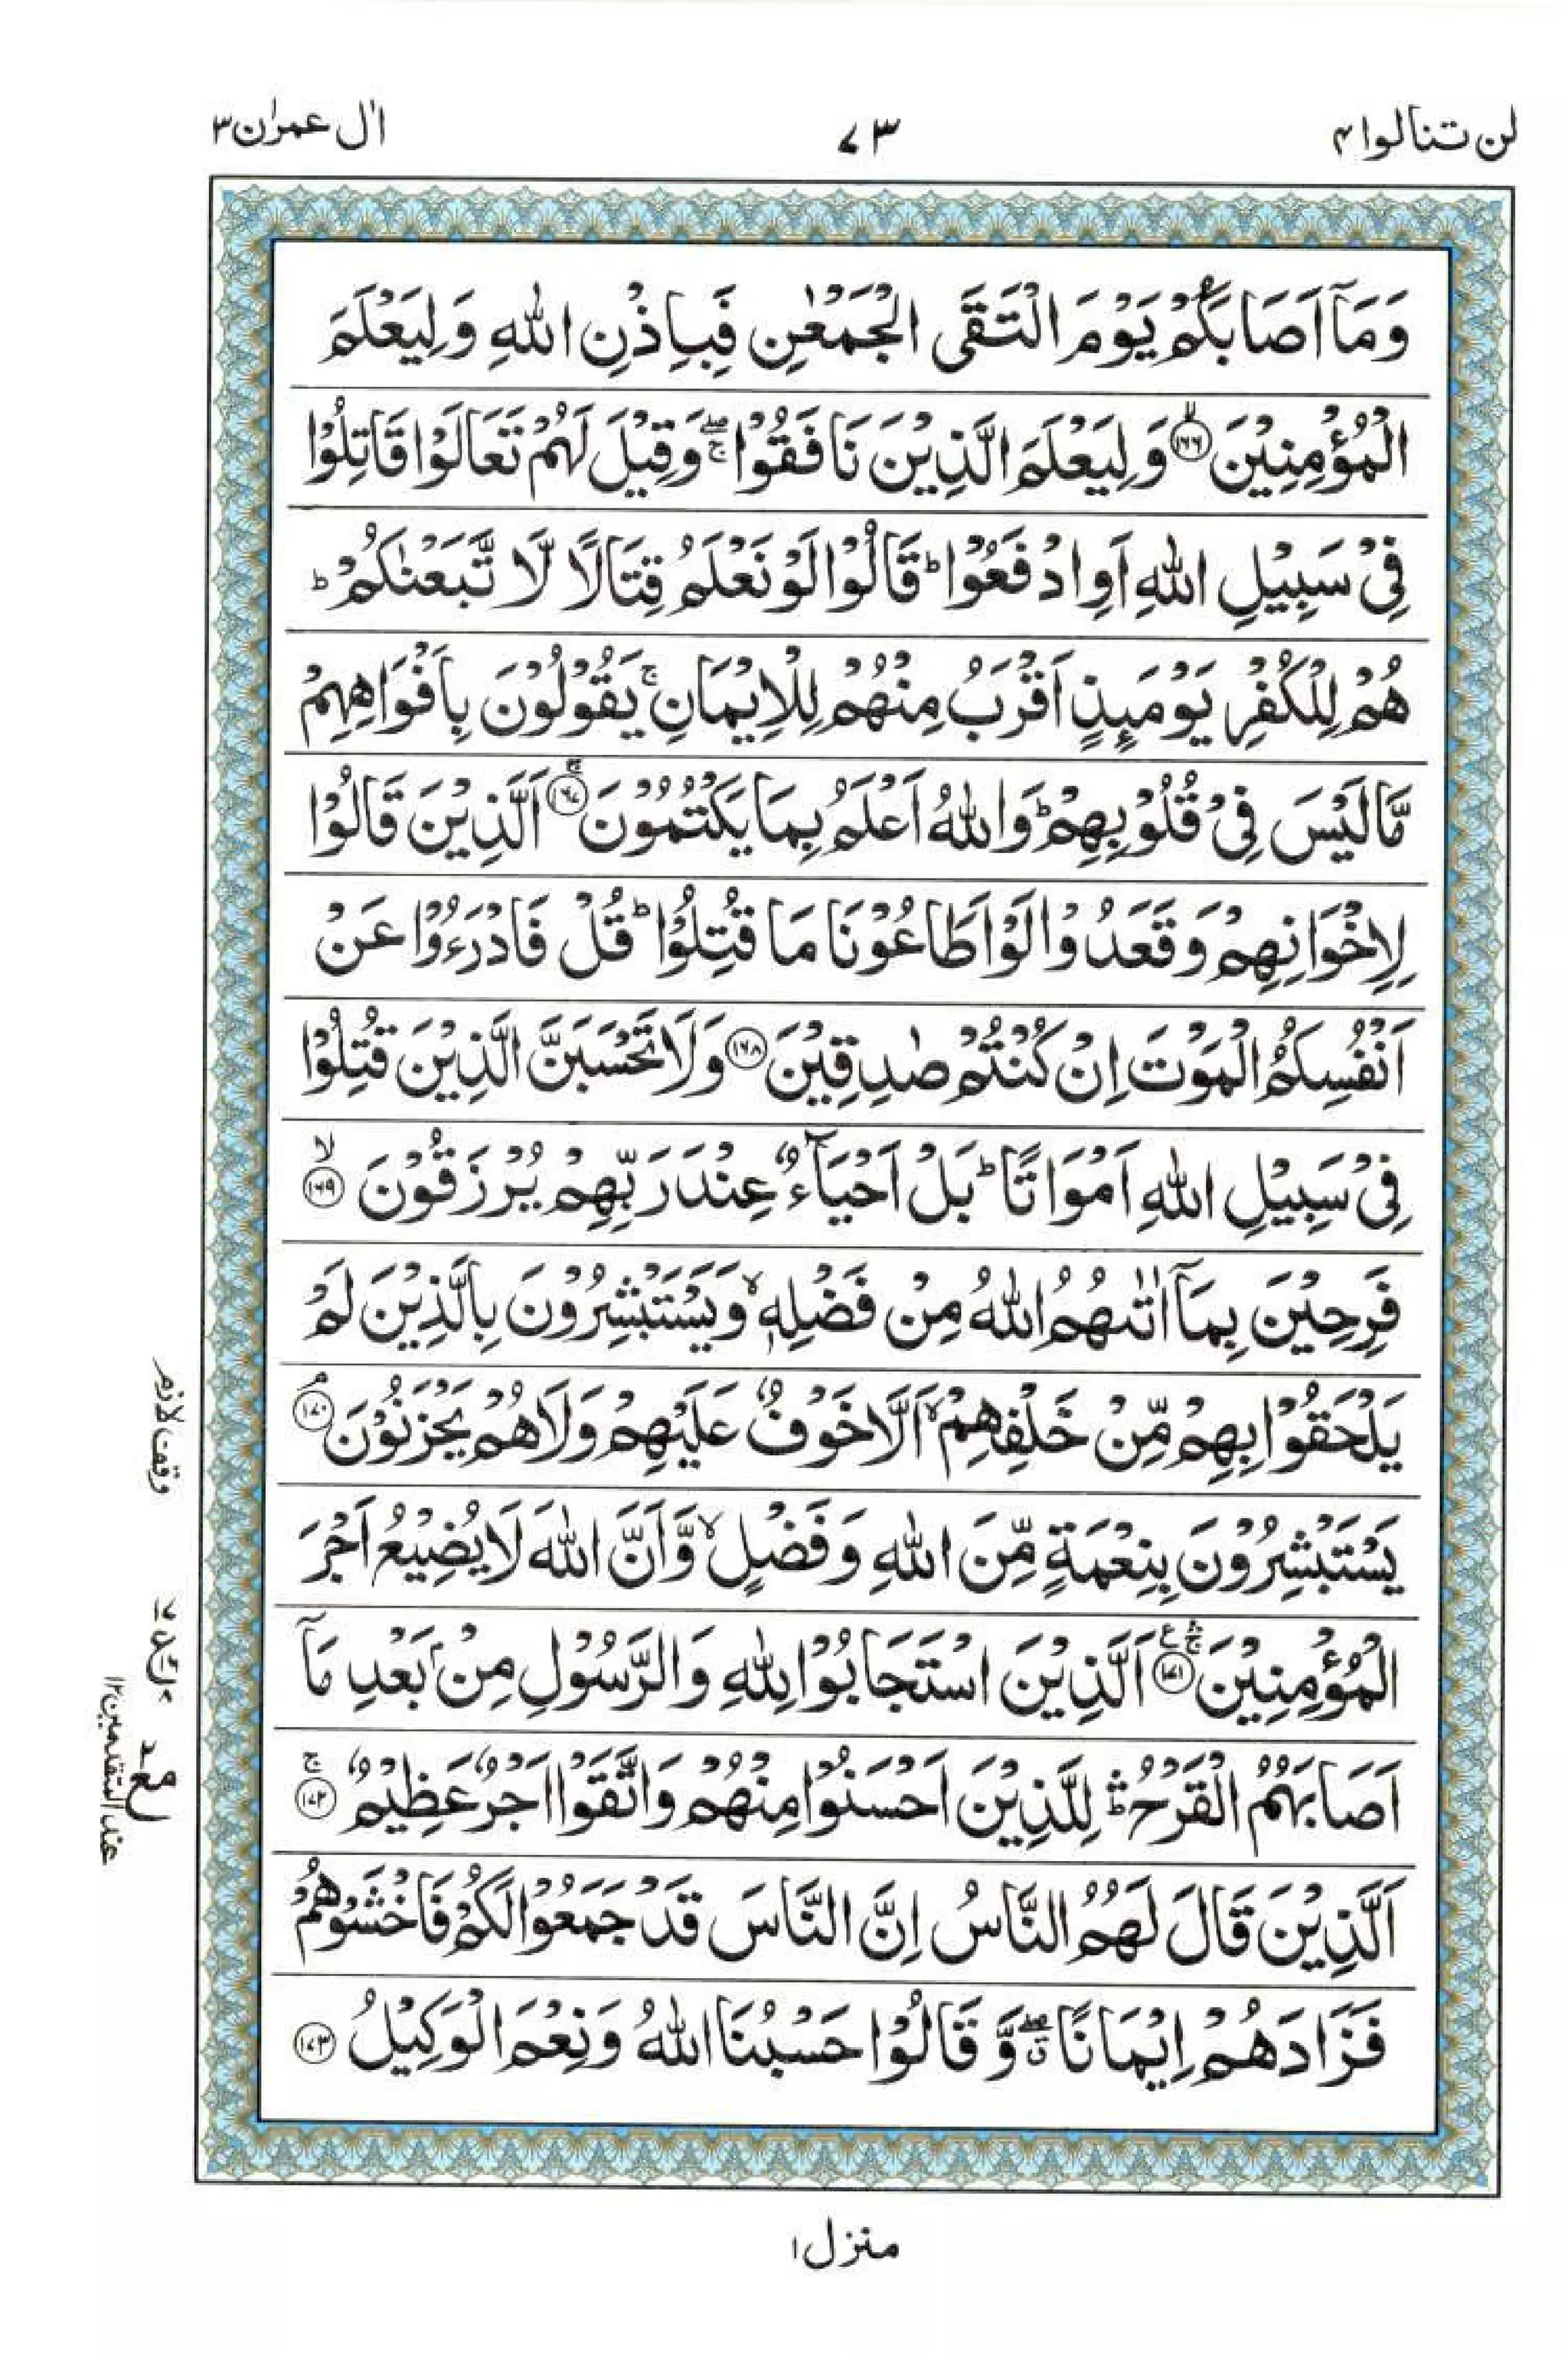 لن تنالوا ۴
۷۳
اٰل عمرٰن ۳
وَمَاۤ اَصَابَكُمْ يَوْمَ الْتَقَى الْجَمْعٰنِ فَبِاِذْنِ اللّٰهِ وَلِيَعْلَمَ
الْمُؤْمِنِيْنَ ۙ﴿۱۶۶﴾ وَلِيَعْلَمَ الَّذِيْنَ نَافَقُوْا ۖۚ وَقِيْلَ لَهُمْ تَعَالَوْا قَاتِلُوْا
فِىْ سَبِيْلِ اللّٰهِ اَوِ ادْفَعُوْا ؕ قَالُوْا لَوْ نَعْلَمُ قِتَالًا لَّا تَّبَعْنٰكُمْ ؕ
هُمْ لِلْكُفْرِ يَوْمَىِٕذٍ اَقْرَبُ مِنْهُمْ لِلْاِيْمَانِ ۚ يَقُوْلُوْنَ بِاَفْوَاهِهِمْ
مَّا لَيْسَ فِىْ قُلُوْبِهِمْ ؕ وَاللّٰهُ اَعْلَمُ بِمَا يَكْتُمُوْنَ ۚ﴿۱۶۷﴾ اَلَّذِيْنَ قَالُوْا
لِاِخْوَانِهِمْ وَقَعَدُوْا لَوْ اَطَاعُوْنَا مَا قُتِلُوْا ؕ قُلْ فَادْرَءُوْا عَنْ
اَنْفُسِكُمُ الْمَوْتَ اِنْ كُنْتُمْ صٰدِقِيْنَ ﴿۱۶۸﴾ وَلَا تَحْسَبَنَّ الَّذِيْنَ قُتِلُوْا
فِىْ سَبِيْلِ اللّٰهِ اَمْوَاتًا ؕ بَلْ اَحْيَآءٌ عِنْدَ رَبِّهِمْ يُرْزَقُوْنَ ۙ﴿۱۶۹﴾
فَرِحِيْنَ بِمَاۤ اٰتٰىهُمُ اللّٰهُ مِنْ فَضْلِهٖ ۙ وَيَسْتَبْشِرُوْنَ بِالَّذِيْنَ لَمْ
يَلْحَقُوْا بِهِمْ مِّنْ خَلْفِهِمْ ۙ اَلَّا خَوْفٌ عَلَيْهِمْ وَلَا هُمْ يَحْزَنُوْنَ ۘ﴿۱۷۰﴾
يَسْتَبْشِرُوْنَ بِنِعْمَةٍ مِّنَ اللّٰهِ وَفَضْلٍ ۙ وَّاَنَّ اللّٰهَ لَا يُضِيْعُ اَجْرَ
الْمُؤْمِنِيْنَ ۚۛ ع﴿۱۷۱﴾ اَلَّذِيْنَ اسْتَجَابُوْا لِلّٰهِ وَالرَّسُوْلِ مِنْۢ بَعْدِ مَاۤ
اَصَابَهُمُ الْقَرْحُ ۛؕ لِلَّذِيْنَ اَحْسَنُوْا مِنْهُمْ وَاتَّقَوْا اَجْرٌ عَظِيْمٌ ۚ﴿۱۷۲﴾
اَلَّذِيْنَ قَالَ لَهُمُ النَّاسُ اِنَّ النَّاسَ قَدْ جَمَعُوْا لَكُمْ فَاخْشَوْهُمْ
فَزَادَهُمْ اِيْمَانًا ۖۗ وَّقَالُوْا حَسْبُنَا اللّٰهُ وَنِعْمَ الْوَكِيْلُ ﴿۱۷۳﴾
وقف لازم
عند المتقدمين ۱۲
منزل ۱